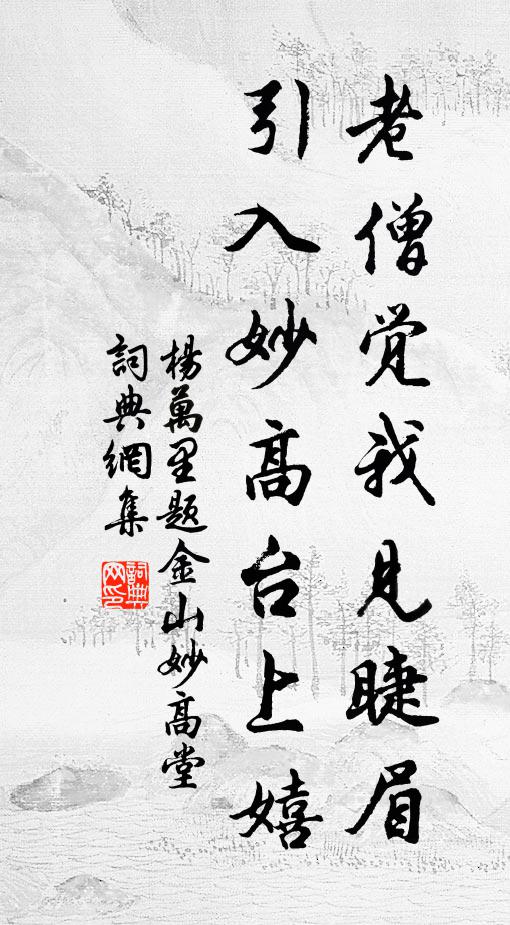 老僧觉我見睫眉
引入妙高台上嬉
楊萬里题金山妙高堂
詞典網集
詞典网印